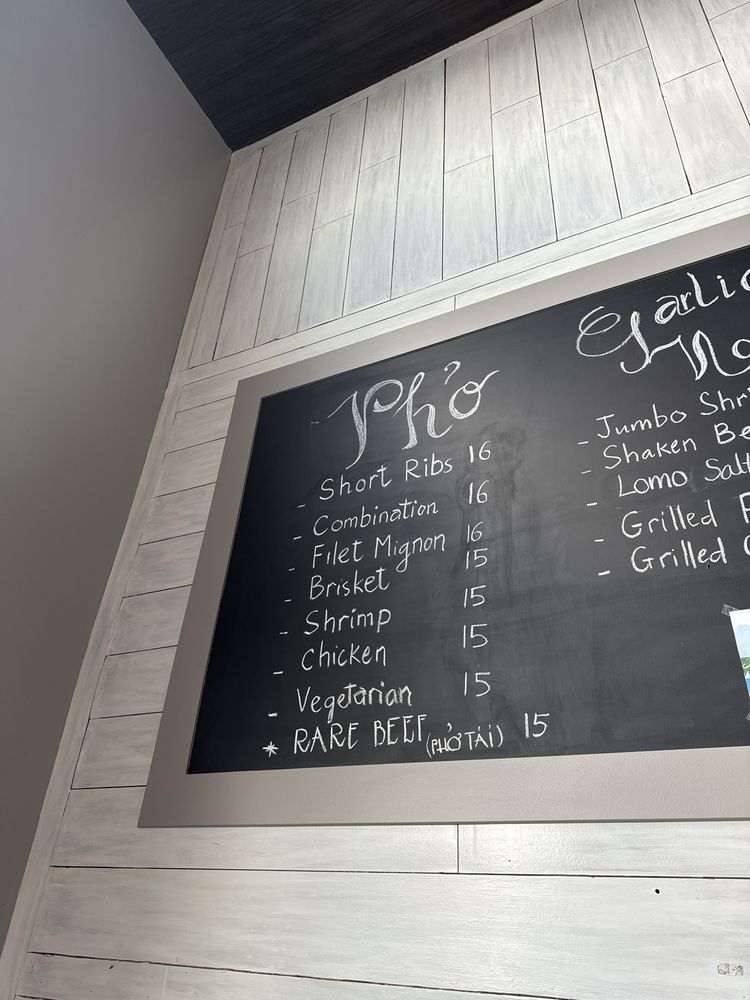 Phở
- Short Ribs 16
- Combination 16
- Filet Mignon 16
- Brisket 15
- Shrimp 15
- Chicken 15
- Vegetarian 15
* RARE BEEF (PHỞ TÁI) 15
Garlic
- Jumbo
- Shaken
- Lomo
- Grilled
- Grilled